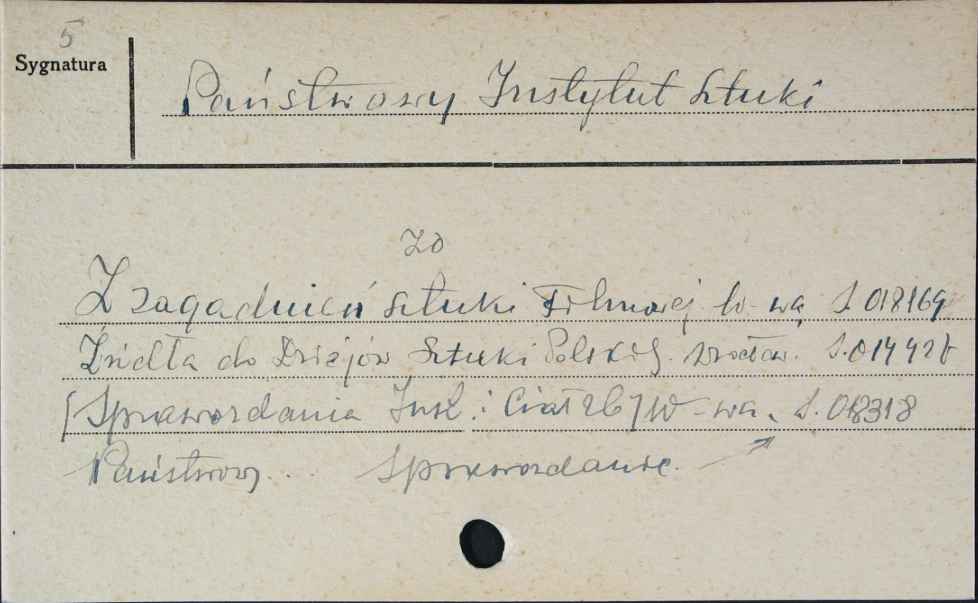 5
Sygnatura
Państwowy Instytut Sztuki
ZO
Z zagadnień Sztuki Filmowej W-wa S.018169
Źródła do Dziejów Sztuki Polskiej. Wrocław. S.014427
Sprawozdania Inst. i W-wa S.018318
Państwowy... Sprawozdanie.